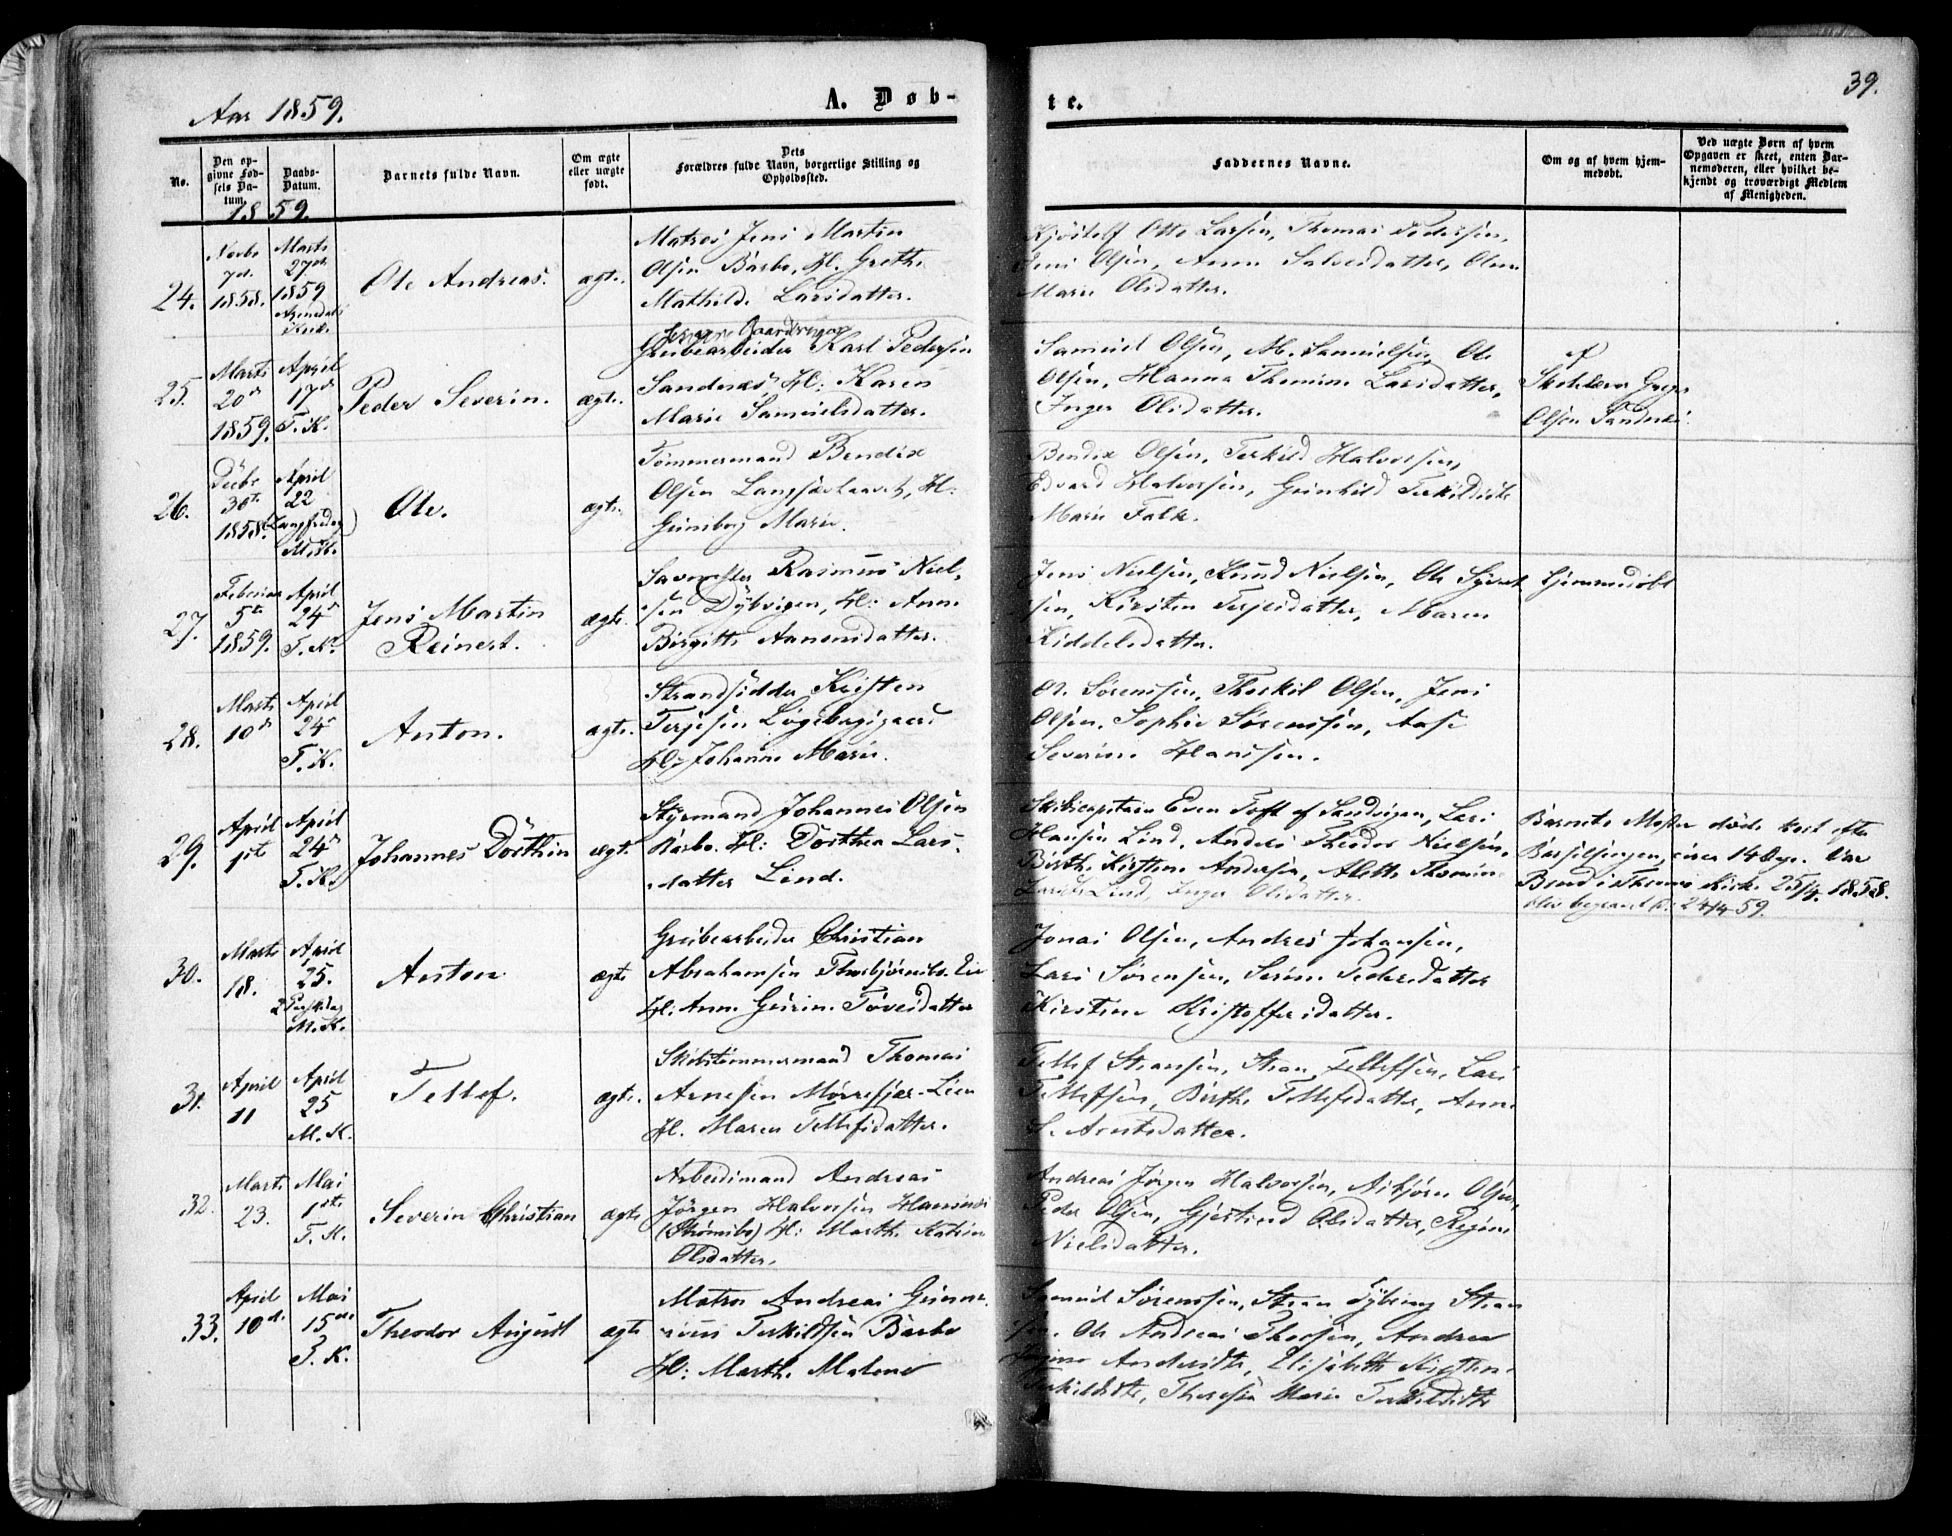 39.
Aar 1859.
A. Døb-
te.
No.
Den op-
givne Fød-
sels Da-
tum.
Daabs-
Datum.
Barnets fulde Navn.
Om ægte
eller uægte
født.
Dets
Forældres fulde Navn, borgerlige Stilling og
Opholdssted.
Faddernes Navne.
Om og af hvem hjem-
medøbt.
Ved uægte Børn af hvem
Opgaven er skeet, enten Bar-
nemoderen, eller hvilket be-
kjendt og troværdigt Medlem
af Menigheden.
1859.
24.
Novbr
7de
1858.
Marts
27de
1859
Ole Andreas.
ægte.
Matros Jens Martin
Olsen Barbo, H: Grethe
Mathilde Larsdatter.
Otto Larsen, Thomas Pedersen,
Jens Olsen, Anne Salvesdatter,
Marie Olsdatter.
25.
Marts
20de
1859.
April
17de
T. K.
Peder Severin.
ægte.
Grubearbeider Karl Pedersen
Sandnæs H: Karen
Marie Samuelsdatter.
Samuel Olsen, M. Samuelsen, Ole
Olsen, Hanna Thomine Larsdatter,
Inger Olsdatter.
af
Skolelærer
Olsen Sandnæs.
26.
Decbr
30te
1858.
April
22
(Langfredag)
Ole.
ægte.
Tømmermand Bendix
Olsen H:
Gunborg Marie.
Bendix Olsen, Terkild Halvorsen,
Edvard Halvorsen, Gunhild
Marie Falk.
27.
Februar
5te
1859.
April
24de
T. K.
Jens Martin
Reinert.
ægte.
Rasmus Niel-
sen Dybvigen, H: Anne
Birgitte Aanonsdatter.
Jens Nielsen, Knud Nielsen, Ole
sen, Kirsten Terjesdatter, Maren
Kiddelsdatter.
hjemmedøbt
28.
Marts
10de
April
24de
T. K.
Anton.
ægte.
Strandsidder Kristen
Terjesen
H: Johanne Marie.
Ole Sørensen, Therkil Olsen, Jens
Olsen, Sophie Sørensen, Aase
Severine Hansen.
29.
April
1ste
April
24de
T. K.
Johannes Dorthin
ægte.
Styrmand Johannes Olsen
Barbo. H: Dorthea Lars-
datter Lind.
Skibscapitain Even Toft af Sandvigen, Lars
Hansen Lind, Anders Theodor Nielsen,
Birthe Kirstine Andersen, Alette Thomine
Lind, Inger Olsdatter.
Barnets Moder døde kort efter
Barselsengen, circa 14 Dge. Var
Brud i Kirke 25/4. 1858.
blev begravet 24/4 59.
30.
Marts
18.
April
25.
2 Paaskedag
M. K.
Anton
ægte
Grubearbeider Christian
Abrahamsen
H: Anne Gurine Tovesdatter
Jonas Olsen, Andres Johansen,
Lars Sørensen, Serine Pedersdatter
Kirstine Kristoffersdatter.
31.
April
11
April
25
M. K.
Tellef.
ægte.
Skibstømmermand Thomas
Arnesen Mørefjær-Lien
H. Maren Tellefsdatter.
Tellef Steansen, Stean Tellefsen, Lars
Tellefsen, Birthe Tellefsdatter, Anne
S. Arntsdatter.
32.
Marts
23.
Mai
1ste
T. K.
Severin Christian
ægte
Arbeidsmand Andreas
Jørgen Halvorsen
(Strømsbo) H: Marthe Katrine
Olsdatter.
Andreas Jørgen Halvorsen, Asbjørn Olsen,
Peder Olsen, Gjertrud Olsdatter, Regine
Nielsdatter.
33.
April
10de
Mai
15de
T. K.
Theodor August
ægte
Matros Andreas Gunne-
rius Terkildsen Barbo
H: Marthe Malene
Samuel Sørensen, Stean Stean-
sen, Ole Andreas Andrea
Elisabeth
Theresia Marie Terkildsdtr